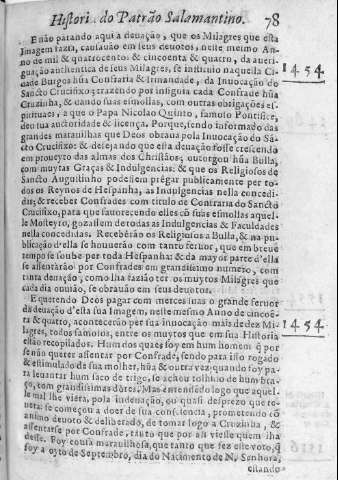 Histori. do Patrão Salamantino. 78
E não parando aqui a deuação, que os Milagres que esta
Imagem fazia, causauão em seus deuotos, neste mesmo An-
no de mil & quatrocentos & cincoenta & quatro, da aueri-
guação authentica de seus Milagres, se instituio naquella Ci-
1454
dade Burgos hũa Confraria & Irmandade, da Inuocação do
Sancto Crucifixo; trazendo por insignia cada Confrade hũa
Cruzinha, & dando suas esmollas, com outras obrigações es-
pirituaes, a que o Papa Nicolao Quinto, famoso Pontifice,
deu sua auctoridade & licença. Porque, sendo informado das
grandes marauilhas que Deos obraua pola Inuocação do Sã-
cto Crucifixo: & desejando que esta deuação fosse crescendo
em proueyto das almas dos Christãos; outorgou hũa Bulla,
com muytas Graças & Indulgencias: & que os Religiosos de
Sancto Augustinho podessem prègar publicamente per to-
dos os Reynos de Hespanha, as Indulgencias nella concedi-
das; & receber Confrades com titulo de Contraria do Sancto
Crucifixo, para que fauorecendo elles cõ suas esmollas aquel-
le Mosteyro, gozassem de todas as Indulgencias & Faculdades
nella concedidas. Receberão os Religiosos a Bulla, & na pu-
blicação d'ella se houuerão com tanto feruor, que em breue
tempo se soube per toda Hespanha: & da mayor parte d'ella
se assentarão por Confrades em grandissimo numero, com
tanta deuação, como lha fazião ter os muytos Milagres que
cada dia ouuião, se obrauão em seus deuotos.
E querendo Deos pagar com merces suas o grande feruor
da deuação d'esta sua Imagem, neste mesmo Anno de cincoẽ-
ta & quatro, acontecerão per sua inuocação mais de dez Mi-
1454
lagres, todos famosos, entre os muytos que em sua Historia
estão recopilados. Hum dos quaes foy em hum homem q̃ por
se não querer assentar por Confrade, sendo para isso rogado
& estimulado de sua molher, hũa & outra vez; quando foy pa-
ra leuantar hum saco de trigo, se achou tolhido de hum bra-
ço, com grandissimas dores. Mas entendẽdo logo que aquel-
le mal lhe viera, pola indeuação, ou quasi desprezo que te-
uera: se começou a doer de sua consciencia, prometendo cõ
animo deuoto & deliberado, de tomar logo a Cruzinha, &
assentarse por Confrade, tanto que por ali viesse quem lha
desse. Foy cousa marauilhosa, que tanto que fez este voto, q̃
foy a oyto de Septembro, dia do Nacimento de N. Senhora,
estando